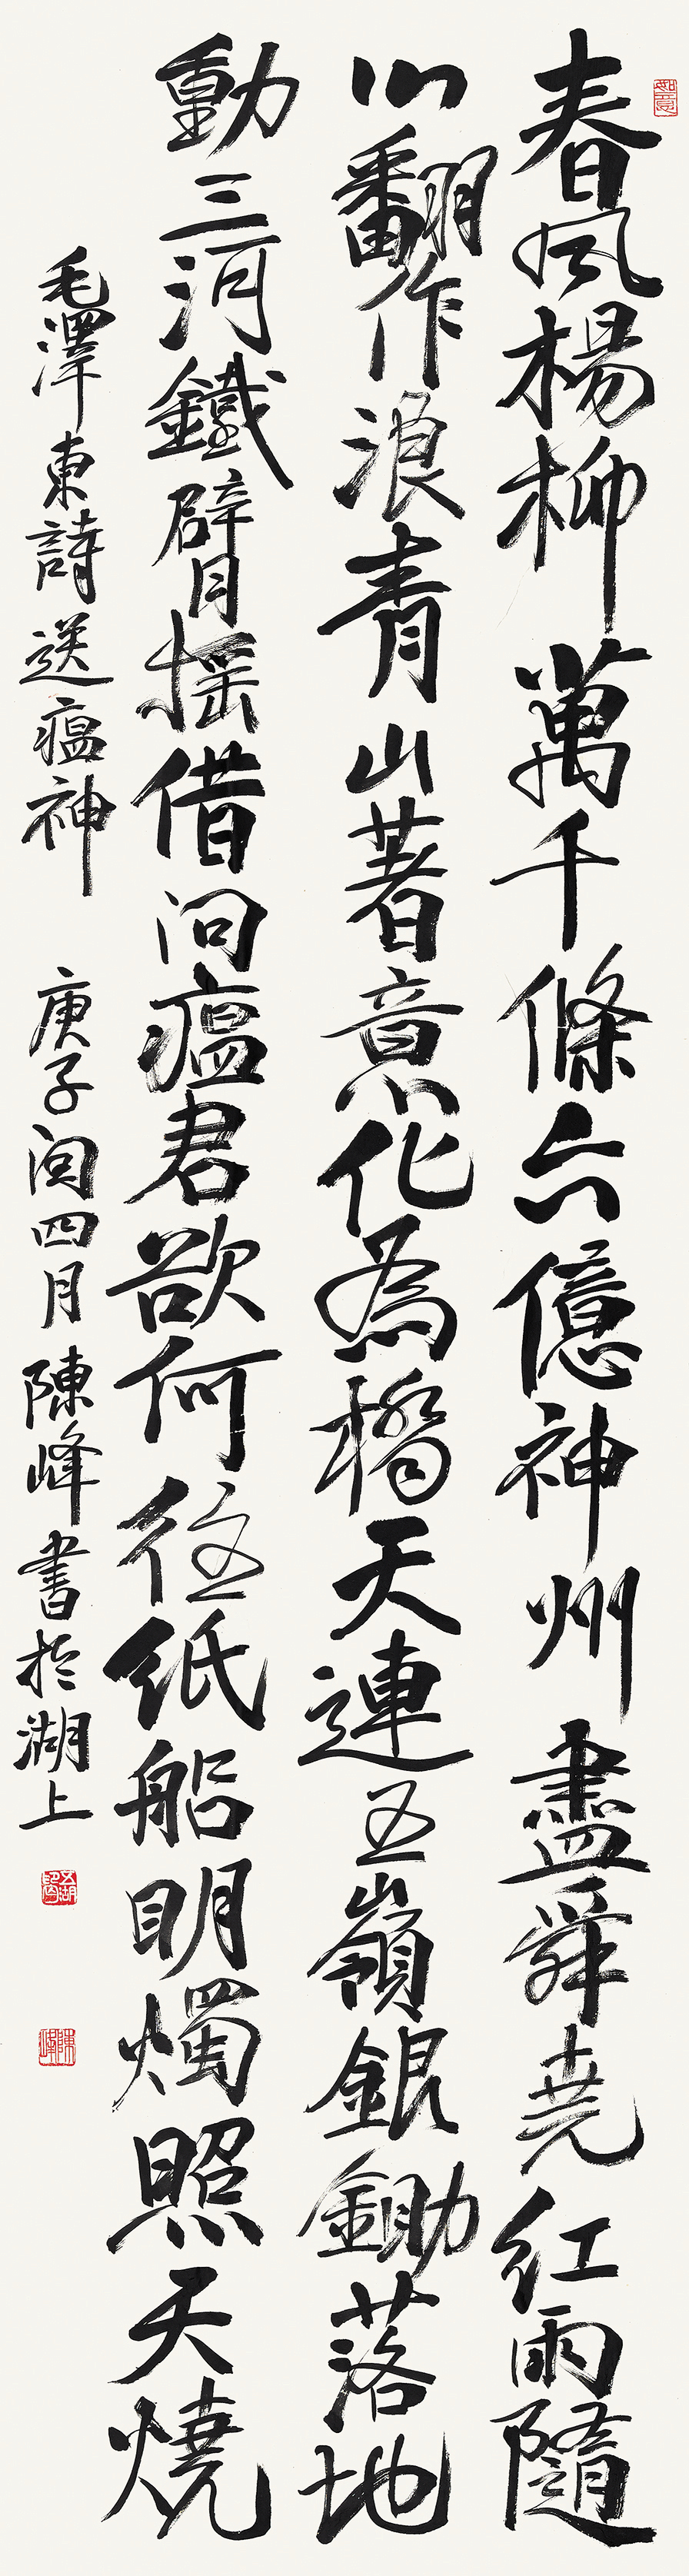 春風楊柳萬千條六億神州盡舜堯紅雨隨
心翻作浪青山著意化為橋天連五嶺銀鋤落地
動三河鐵臂搖借問瘟君欲何往紙船明燭照天燒
毛澤東詩送瘟神 庚子閏四月陳峰書於湖上
如意
陳峰